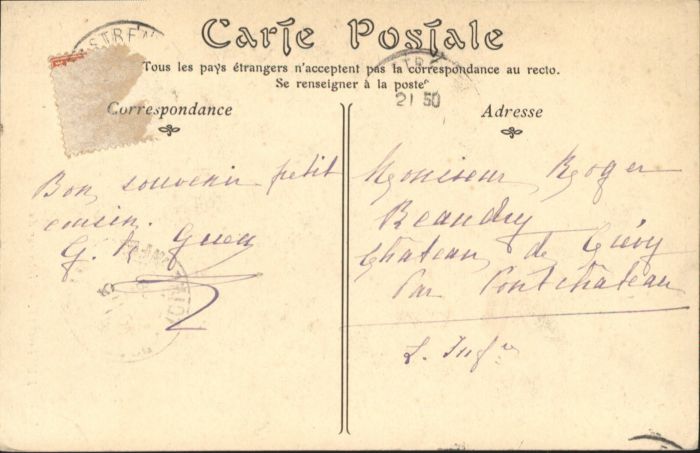 Carte Postale
Tous les pays étrangers n'acceptent pas la correspondance au recto.
Se renseigner à la poste
21 50
Correspondance
Bon souvenir petit
cousin.
G.
Adresse
Monsieur Roger
Beaudry
Château de
Par Pontchâteau
L. Infre